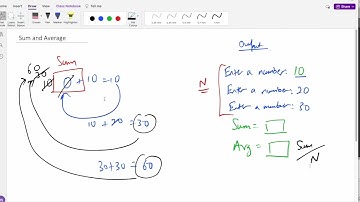 Home Insert Draw Class Notebook View
Sum and Average
Output
60
30
10
Sum
0 + 10 = 10
10 + 20 = 30
30+30 = 60
N
Enter a number: 10
Enter a number: 20
Enter a number: 30
Sum =
Avg =
Sum
N